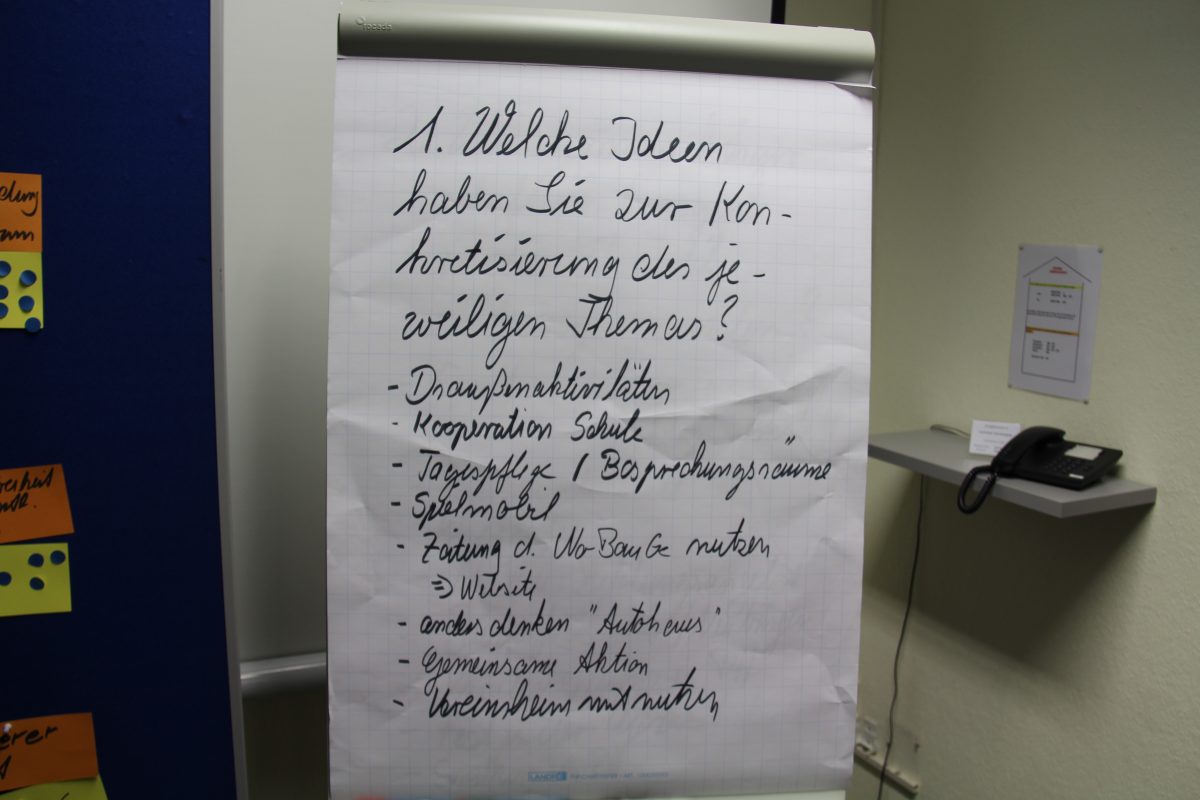 1. Welche Ideen
haben Sie zur Kon-
kretisierung des je-
weiligen Themas?
- Draußenaktivitäten
- Kooperation Schule
- Tagespflege / Besprechungsräume
- Spielmobil
- Zeitung d. Wo BauGe nutzen
=> Website
- anders denken "Autohaus"
- Gemeinsame Aktion
- Vereinsheim mit nutzen
LANDRÉ